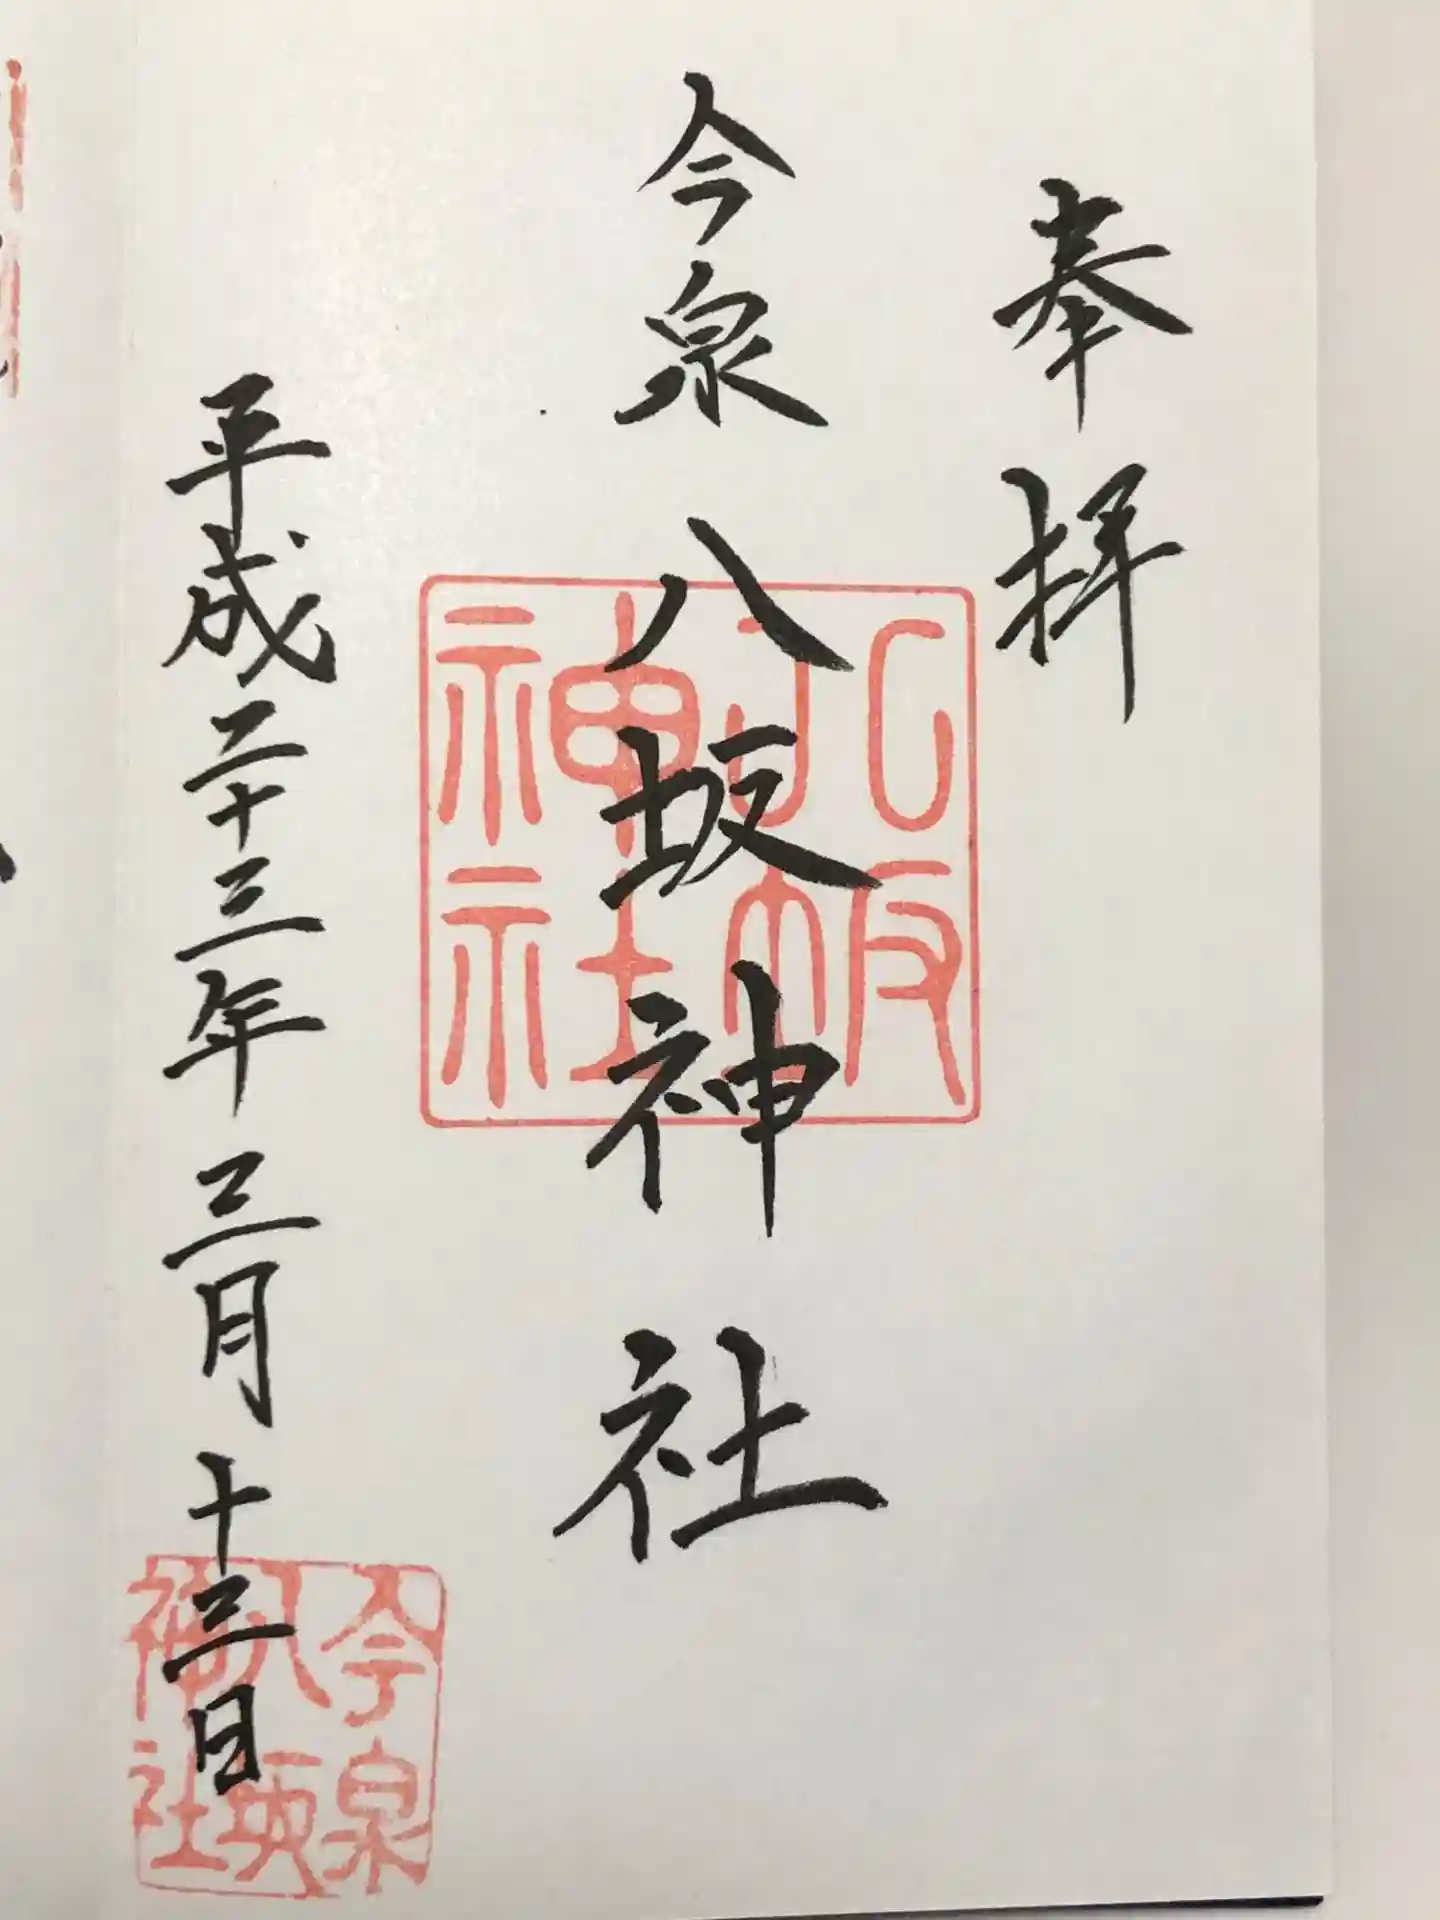 奉拝
今泉八坂神社
八坂神社
平成二十三年三月十三日
今泉八坂神社